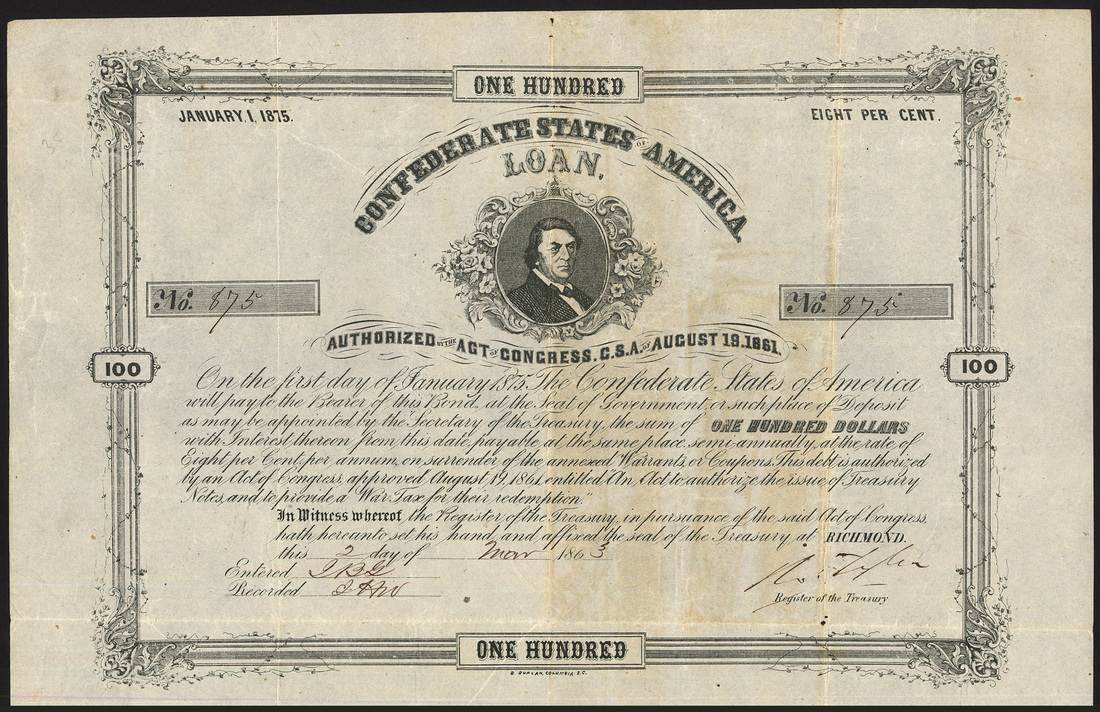 ONE HUNDRED
JANUARY 1, 1875.
EIGHT PER CENT.
CONFEDERATE STATES OF AMERICA
LOAN.
No. 875
No. 875
AUTHORIZED BY THE ACT OF CONGRESS, C.S.A. OF AUGUST 19, 1861.
100
100
On the first day of January 1875, The Confederate States of America
will pay to the Bearer of this Bond, at the Seat of Government, or such place of Deposit
as may be appointed by the Secretary of the Treasury, the sum of ONE HUNDRED DOLLARS
with Interest thereon from this date, payable at the same place, semi-annually, at the rate of
Eight per Cent, per annum, on surrender of the annexed Warrants, or Coupons. This debt is authorized
by an Act of Congress, approved August 19, 1861, entitled "An Act to authorize the issue of Treasury
Notes, and to provide a War Tax for their redemption."
In Witness whereof, the Register of the Treasury, in pursuance of the said Act of Congress,
hath hereunto set his hand, and affixed the seal of the Treasury, at RICHMOND.
this 2 day of Mar 1863
Entered
Recorded
Tyler
Register of the Treasury
ONE HUNDRED
B. DUNCAN, COLUMBIA, S.C.